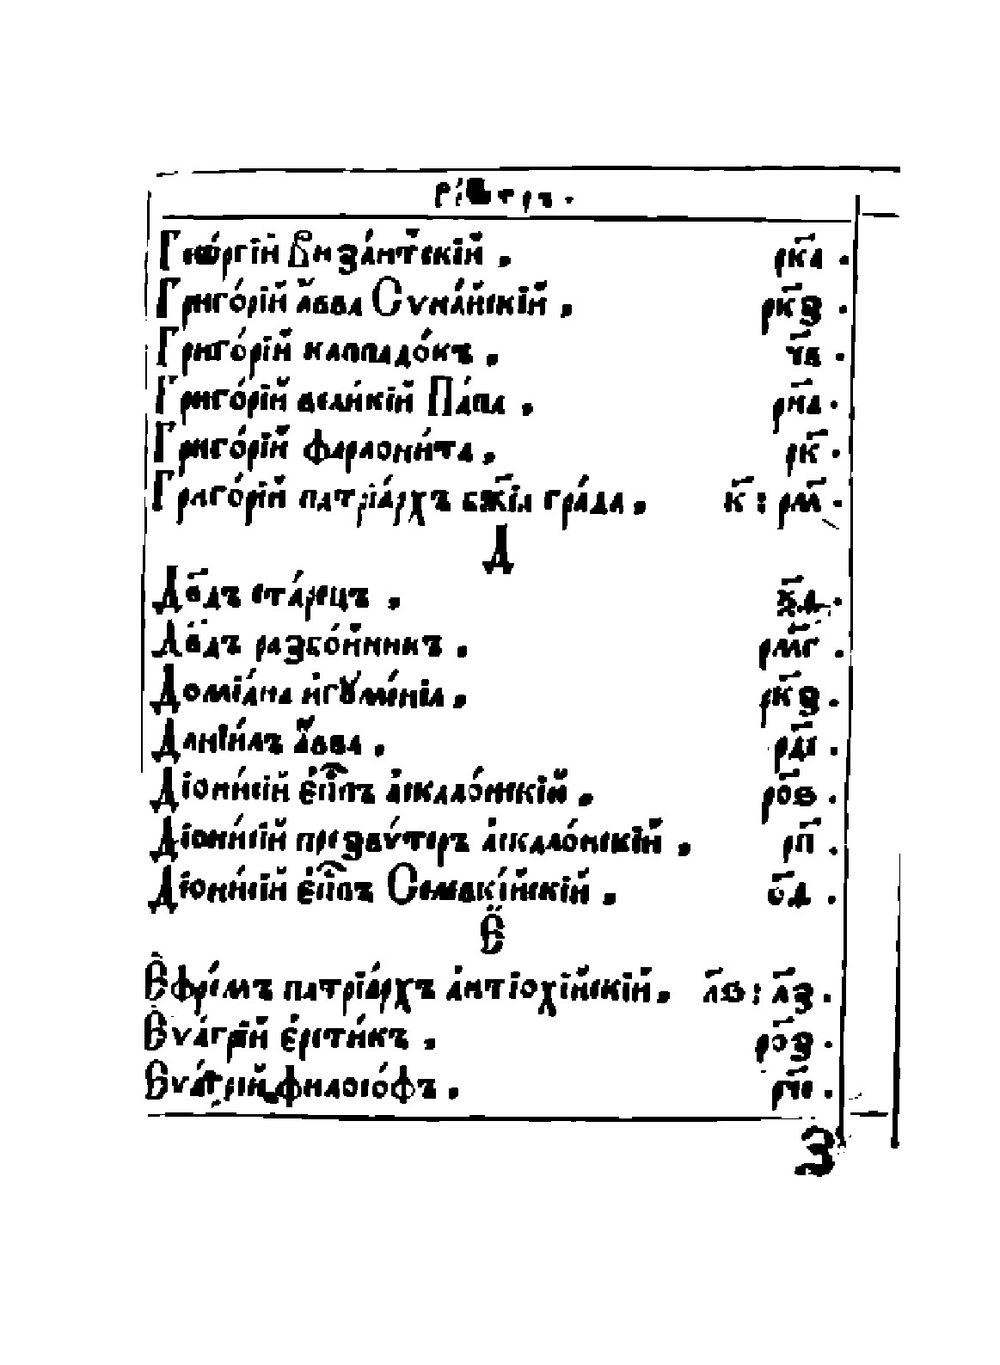 Геѡ́ргїй Ви​за́нт̾скїй .	рк҃а .
Григо́рїй а҆́вва Сѵна́йскїй .	рк҃з .
Григо́рїй каппадо́къ .	ч҃в .
Григо́рїй вели́кїй Па́па .	рн҃а .
Григо́рїй фараони́та .	рк҃ .
Григо́рїй патрїа́рхъ бж҃їѧ гра́да .	к҃ : рм҃ .
Д
Дв҃дъ ста́рецъ .
Дв҃дъ разбо́йникъ .	рм҃г .
Домїа́на и҆гꙋ́менїа .	рк҃з .
Данїи́лъ а҆́вва .	рд҃і .
Дїони́сїй є҆пⷭ҇пъ а҆скало́нскїй .	ро҃ѕ .
Дїони́сїй презвѵ́теръ а҆скало́нскїй .	рп҃ .
Дїони́сїй є҆пⷭ҇пъ Селевкі́йскїй .	о҃д .
Є
Є҆фре́мъ патрїа́рхъ а҆нтїохі́йскїй .	л҃ѕ : л҃з .
Є҆ѵа́грїй є҆рети́къ .	ро҃з .
Є҆ѵа́грїй філосо́фъ .
З